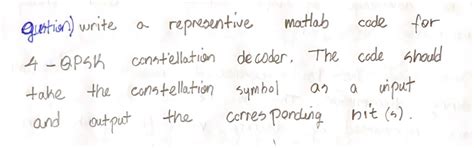 question) write a representive matlab code for
4-QPSK constellation decoder. The code should
take the constellation symbol as a input
and output the corresponding bit(s).